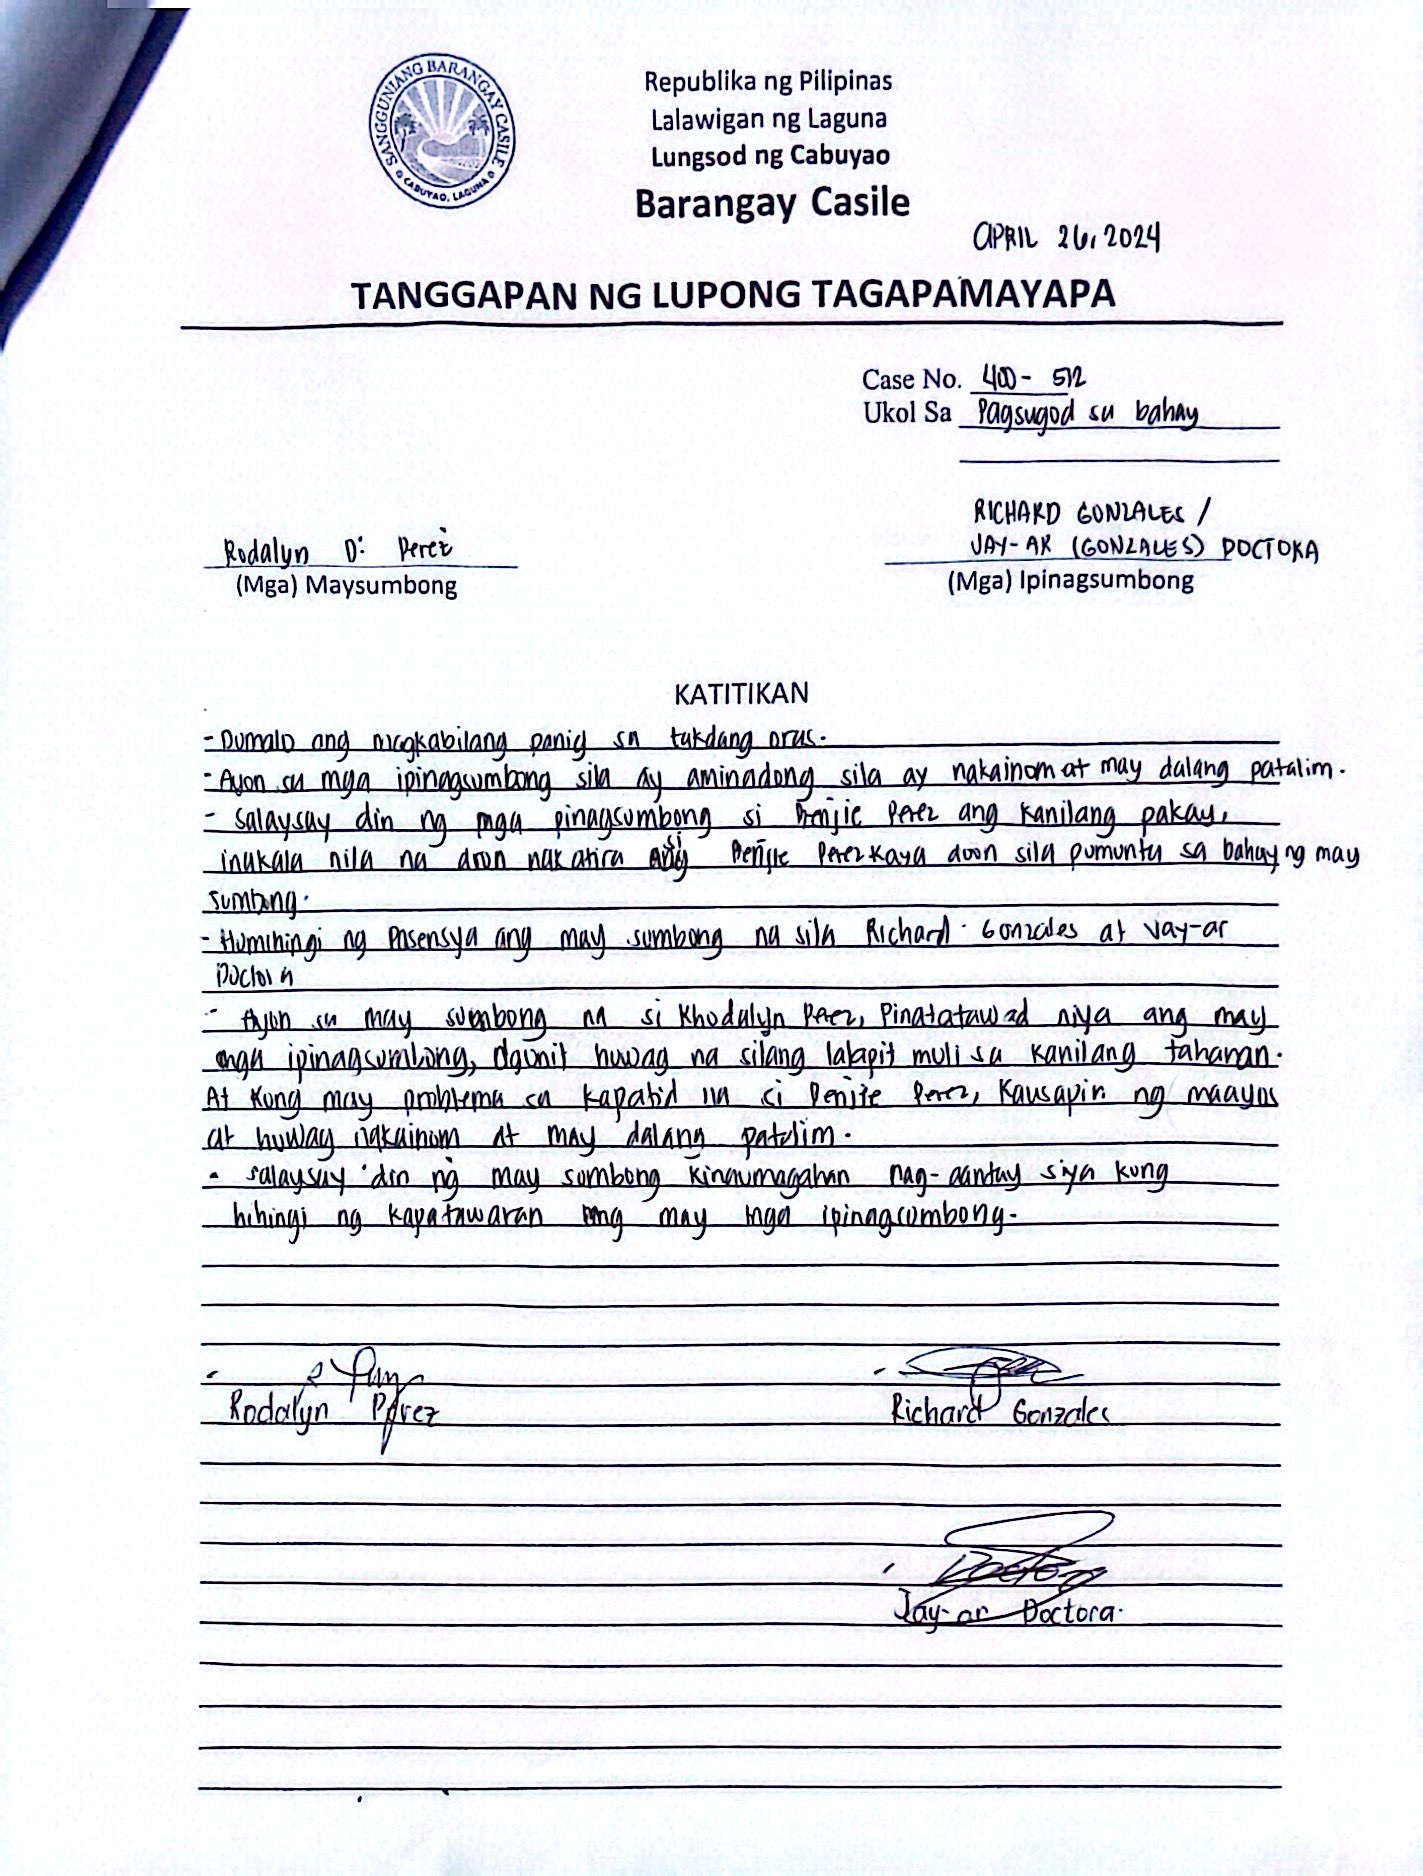 SANGGUNIANG BARANGAY CASILE
CABUYAO, LAGUNA
Republika ng Pilipinas
Lalawigan ng Laguna
Lungsod ng Cabuyao
Barangay Casile
APRIL 26, 2024
TANGGAPAN NG LUPONG TAGAPAMAYAPA
Case No. 400 - 512
Ukol Sa Pagsugod sa bahay
Rodalyn D. Perez
(Mga) Maysumbong
RICHARD GONZALES /
JAY-AR (GONZALES) DOCTORA
(Mga) Ipinagsumbong
KATITIKAN
- Dumalo ang magkabilang panig sa takdang oras.
- Ayon sa mga ipinagsumbong sila ay aminadong sila ay nakainom at may dalang patalim.
- Salaysay din ng mga pinagsumbong si Benjie Perez ang kanilang pakay,
inakala nila na doon nakatira si Benjie Perez kaya doon sila pumunta sa bahay ng may
sumbong.
- Humihingi ng Pasensya ang may sumbong na sila Richard Gonzales at Jay-ar
Doctora
- Ayon sa may sumbong na si Rhodalyn Perez, Pinatatawad niya ang may
mga ipinagsumbong, dgunit huwag na silang lalapit muli sa kanilang tahanan.
At kung may problema sa kapatid na si Benjie Perez, kausapin ng maayos
at huwag nakainom at may dalang patalim.
- Salaysay din ng may sumbong kinaumagahan nag-aantay siya kung
hihingi ng kapatawaran ang may mga ipinagsumbong.
Rodalyn Perez
Richard Gonzales
Jay-ar Doctora.